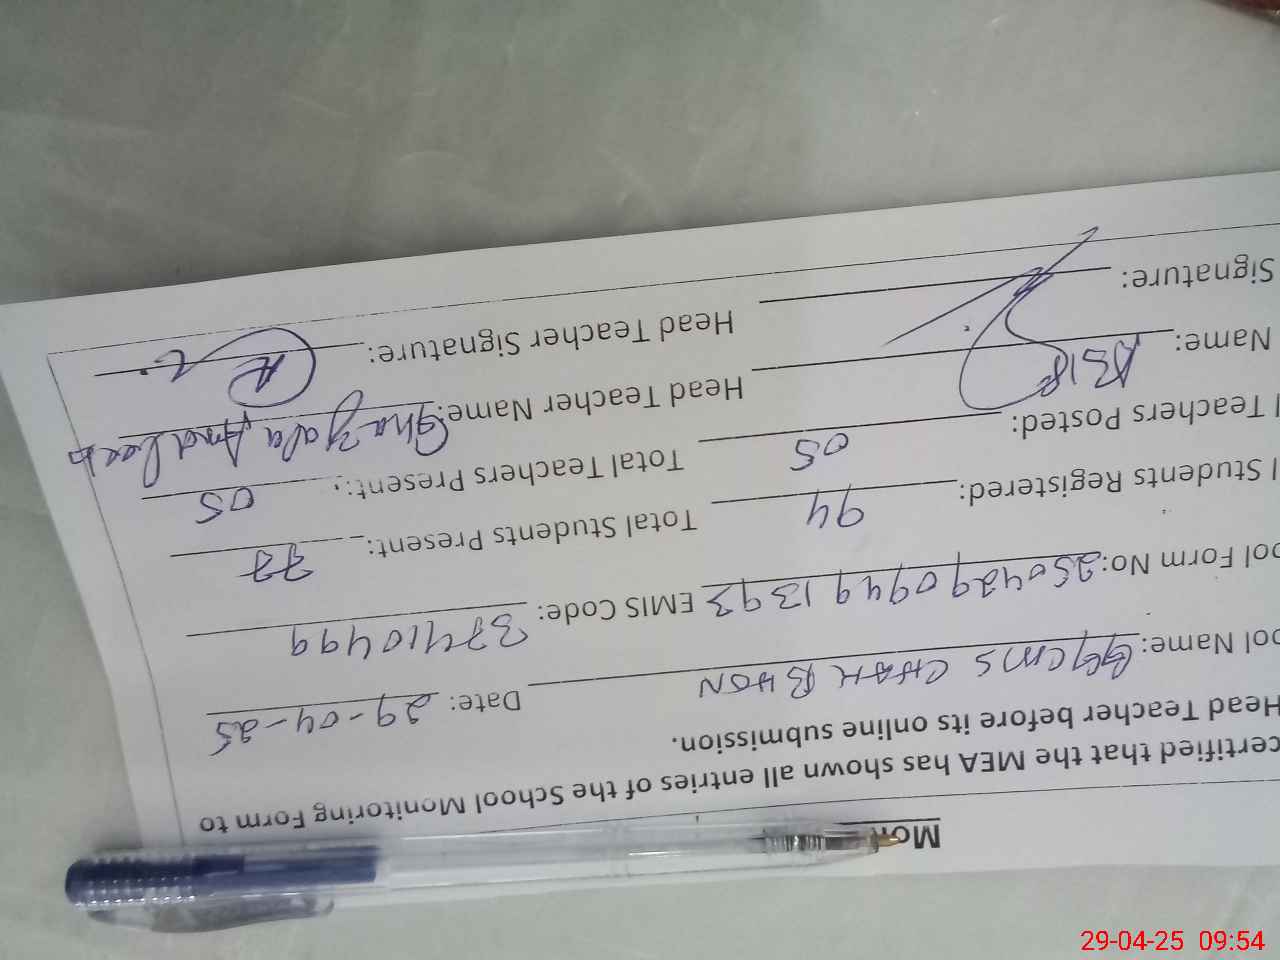 Mo
certified that the MEA has shown all entries of the School Monitoring Form to
Head Teacher before its online submission.
ool Name: GGCMS CHAK BHON Date: 29-04-25
ool Form No: 25042909491393 EMIS Code: 37410499
l Students Registered: 94 Total Students Present: 77
l Teachers Posted: 05 Total Teachers Present: 05
Name: Head Teacher Name: Ghazala Andleeb
Signature: Head Teacher Signature:
29-04-25 09:54